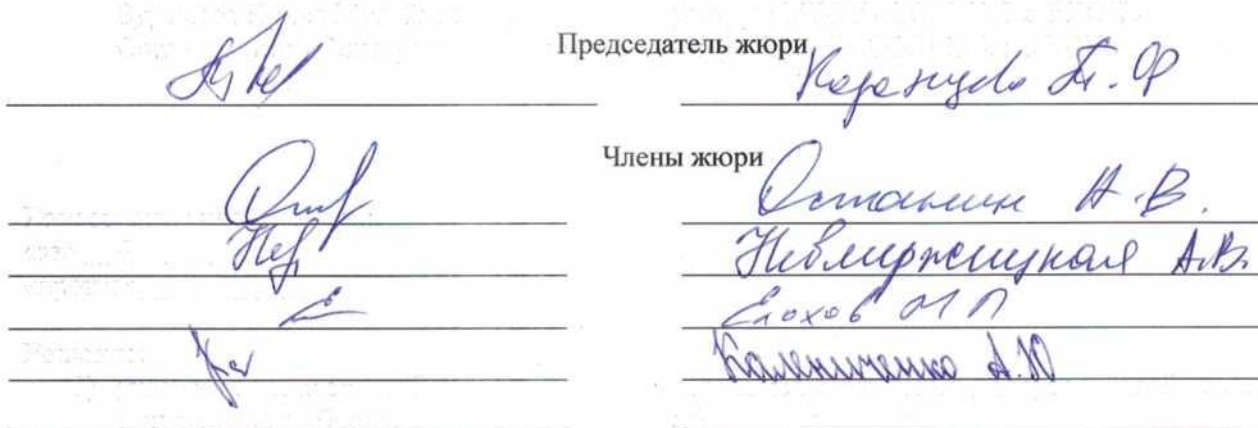 Председатель жюри
Казанцева Т.Ф
Члены жюри
Останин А.В.
Невмержицкая А.В.
Елохов М П
Калениченко А.Ю